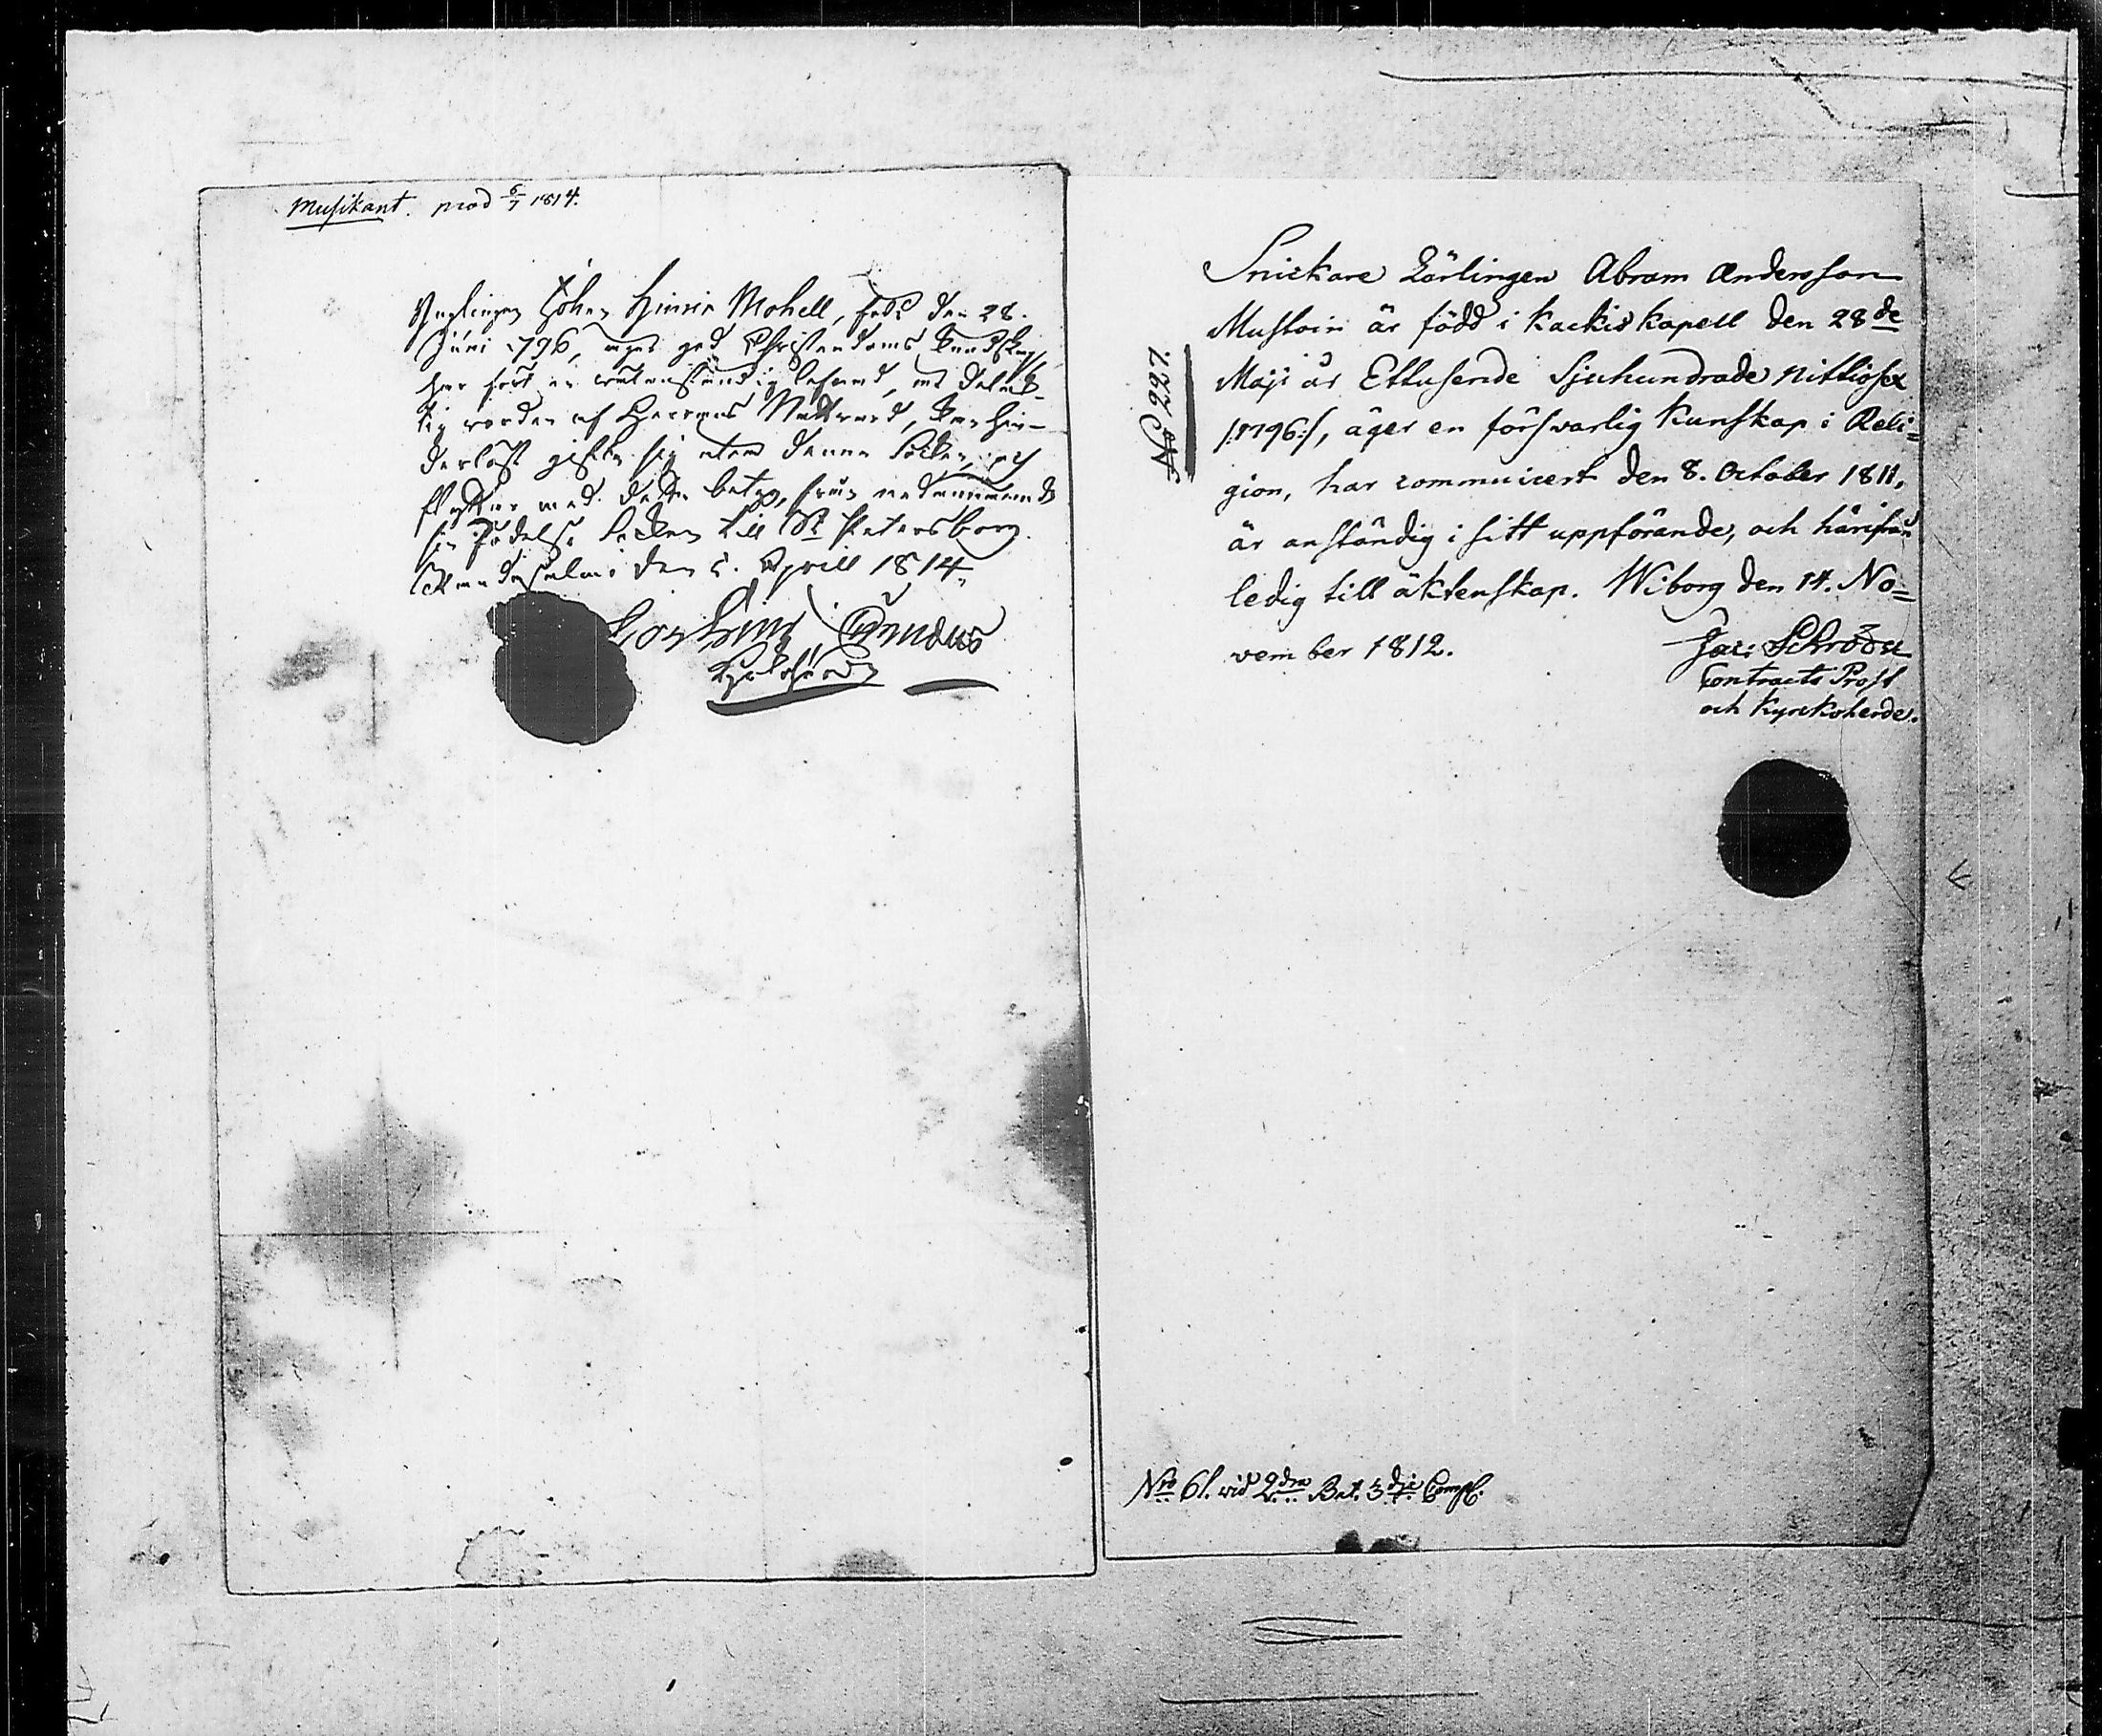 Musikant. prod 5/7 1814.
Ynglingen Johan Hinric Mohell, född den 28.
Juni 1796, äger god Christendoms kundskap,
har fört en anständig lefnad, delak-
tig worden af Herrans Nattward, kan hin-
derlöst gifta sig utom denna Socken, och
flyttar med detta betyg, från
sin födelse Socken till St Petersborg.
den 5. Aprill 1814.
Kyrkoherde
No 227.
Snickare Lärlingen Abram Andersson
Mustoin är född i Kackis Kapell den 28de
Maji år Ettusende Sjuhundrade Nittiosex
/:1796:/, äger en försvarlig Kunskap i Reli=
gion, har communicert den 8. October 1811,
är anständig i sitt uppförande, och härifrån
ledig till äktenskap. Wiborg den 14. No=
vember 1812.
Jac: Schröder
Contracts Prost
och Kyrkoherde.
Nro 61. vid 2dra Bat. 3dje Comp.